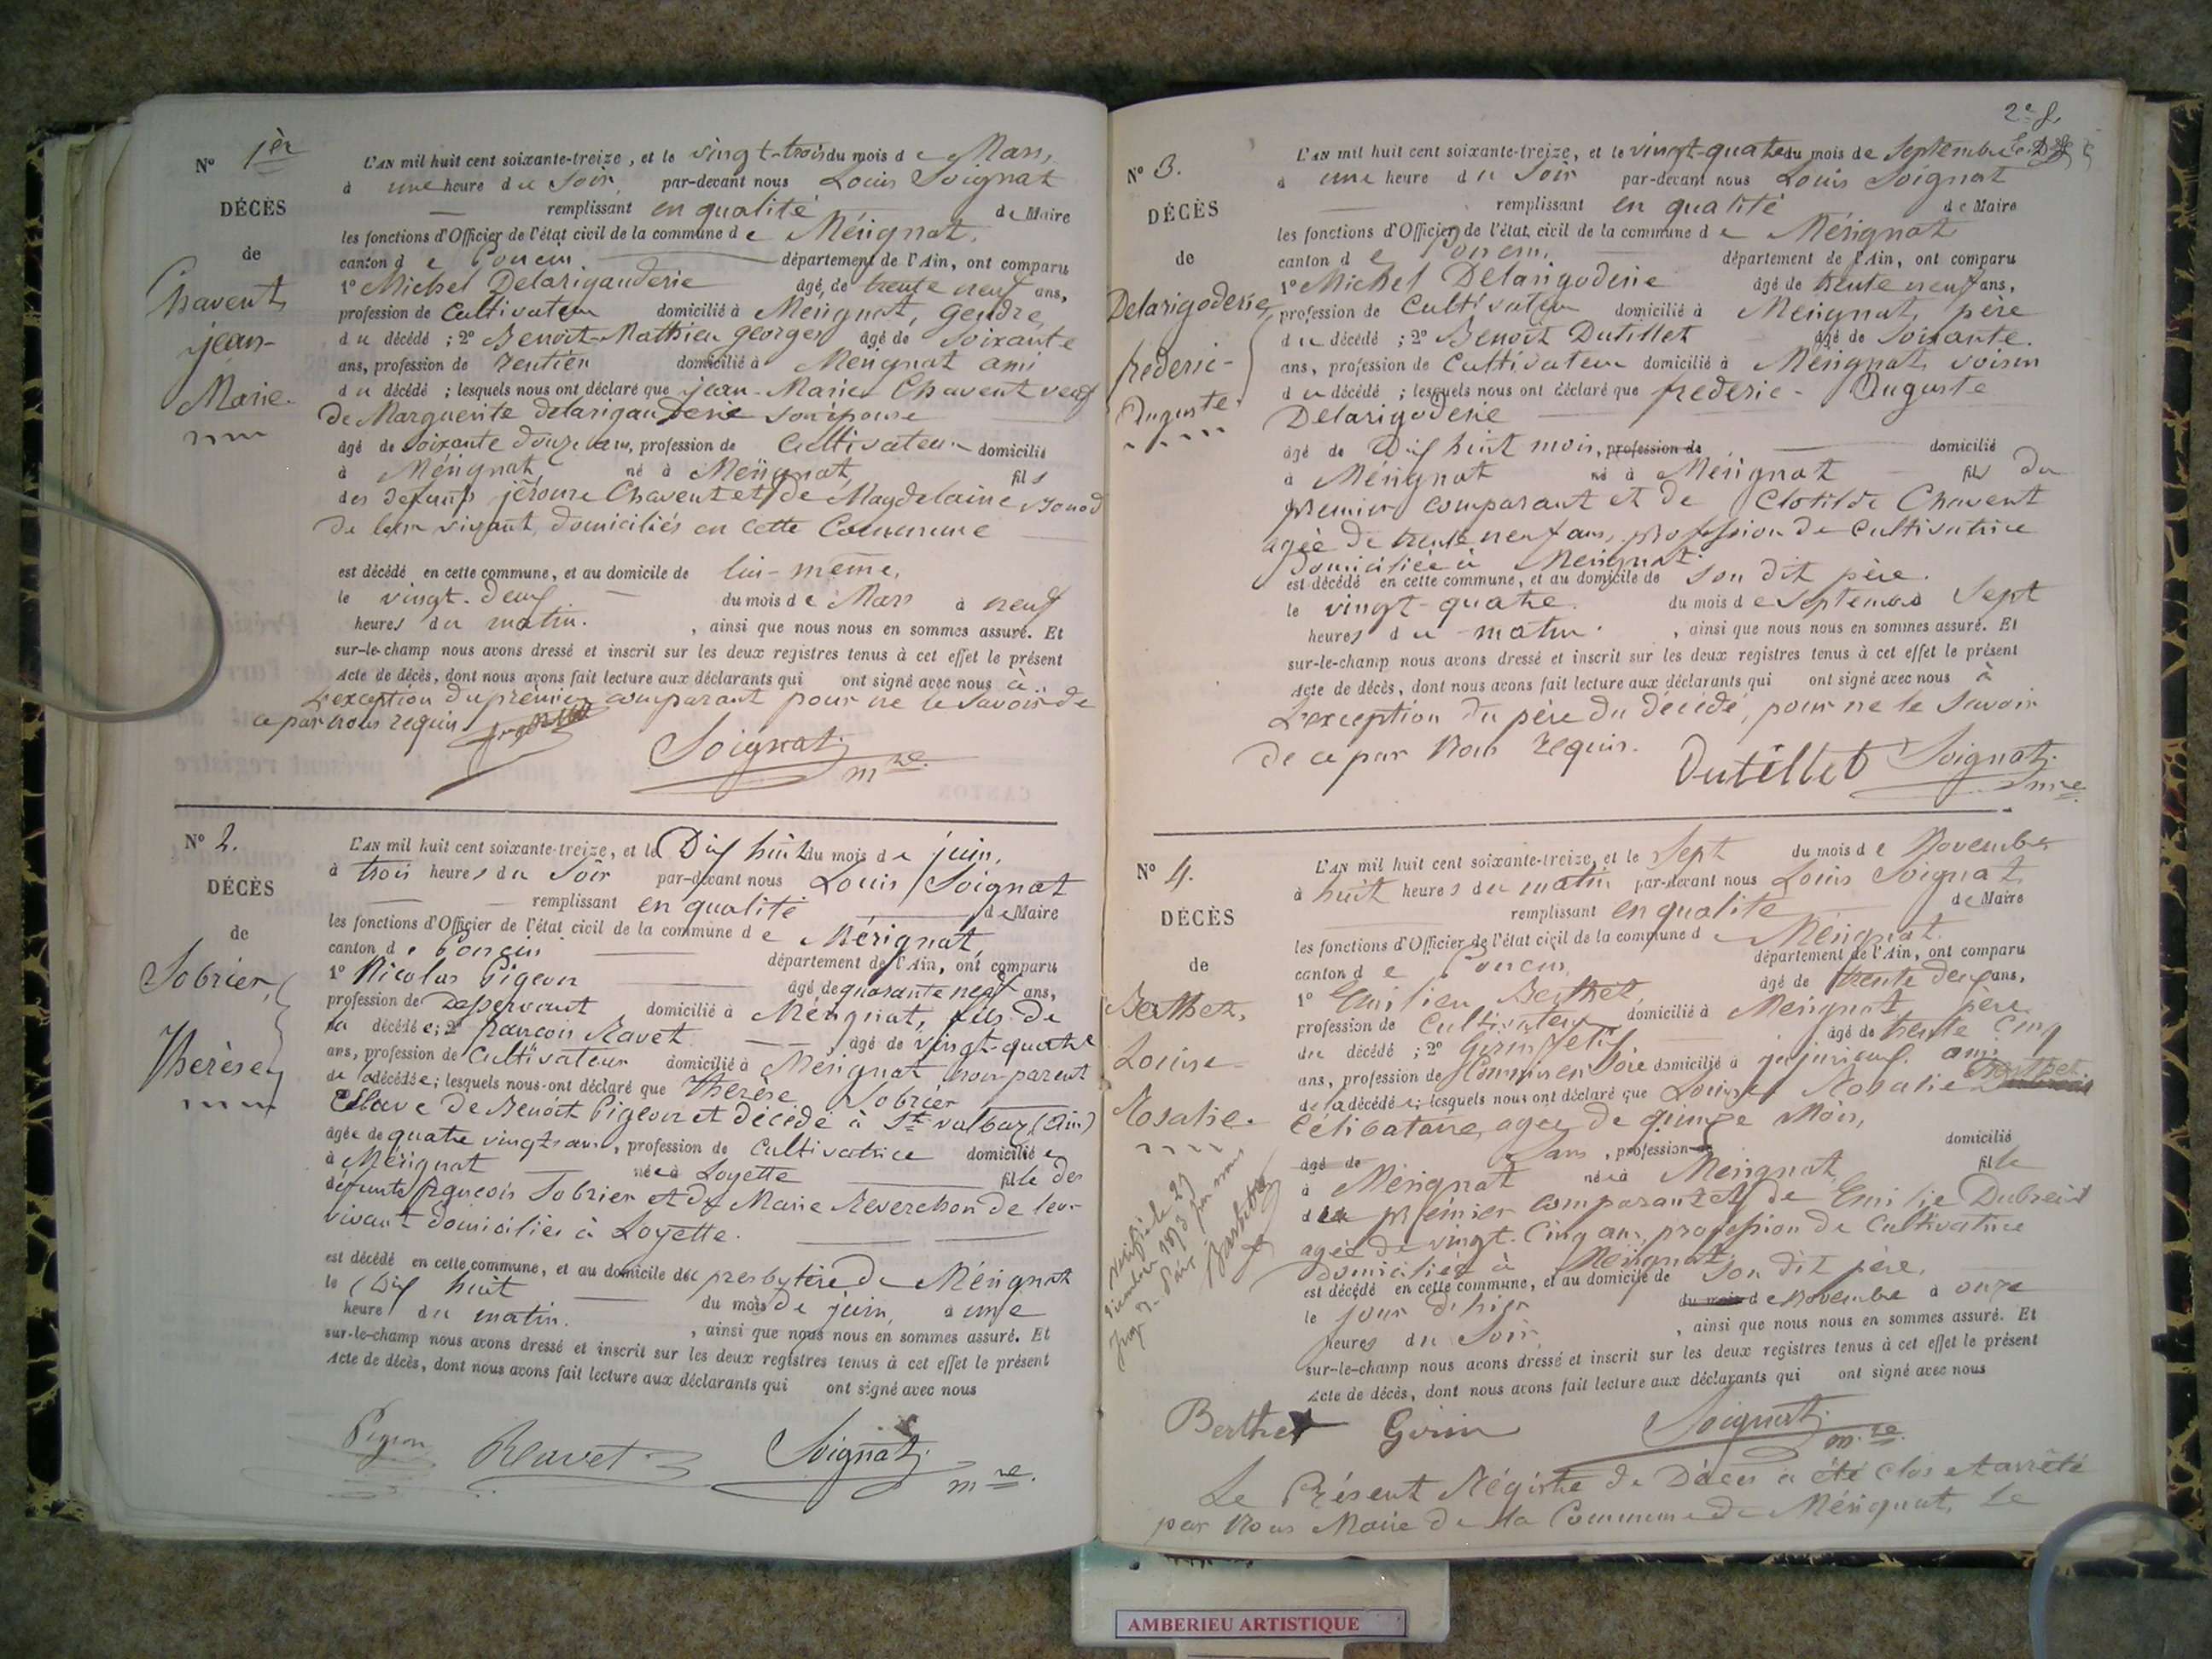 N° 1er
DÉCÈS
de
Chavent
jean-
Marie.
L'AN mil huit cent soixante-treize, et le vingt-trois du mois de Mars,
à une heure du Soir, par-devant nous Louis Soignat
remplissant en qualité de Maire
les fonctions d'Officier de l'état civil de la commune de Mérignat,
canton de Poncin département de l'Ain, ont comparu
1° Michel Delarigauderie âgé de trente neuf ans,
profession de Cultivateur domicilié à Mérignat, gendre
du décédé ; 2° Benoit-Mathieu georges âgé de Soixante
ans, profession de rentier domicilié à Mérignat ami
du décédé ; lesquels nous ont déclaré que jean-Marie Chavent veuf
de Marguerite delarigauderie son épouse
âgé de soixante douze ans, profession de Cultivateur domicilié
à Mérignat né à Mérignat, fils
des defunts jérome Chavent et de Magdelaine Bonod
de leur vivant, domiciliés en cette Commune
est décédé en cette commune, et au domicile de lui-même,
le vingt-deux du mois de Mars à neuf
heures du matin. , ainsi que nous nous en sommes assuré. Et
sur-le-champ nous avons dressé et inscrit sur les deux registres tenus à cet effet le présent
Acte de décès, dont nous avons fait lecture aux déclarants qui ont signé avec nous à
L'exception du premier comparant pour ne le savoir de
ce par nous requis
Soignat mre
N° 2.
DÉCÈS
de
Sobrier,
Thérèse
L'AN mil huit cent soixante-treize, et le Dix huit du mois de juin,
à trois heures du Soir par-devant nous Louis Soignat
remplissant en qualité de Maire
les fonctions d'Officier de l'état civil de la commune de Mérignat,
canton de Poncin département de l'Ain, ont comparu
1° Nicolas Pigeon âgé de quarante neuf ans,
profession de Desservant domicilié à Mérignat, fils de
la décédée ; 2° françois Ravet âgé de vingt-quatre
ans, profession de Cultivateur domicilié à Mérignat non parent
de la décédée ; lesquels nous ont déclaré que Thérèse Sobrier
de Benoît Pigeon et décédé à St valbaz (Ain)
âgée de quatre vingts ans, profession de Cultivatrice domiciliée
à Mérignat née à Loyette fille des
défunts françois Sobrier et de Marie Reverchon de leur
vivant domiciliés à Loyette.
est décédé en cette commune, et au domicile du presbytère de Mérignat
le Dix huit du mois de juin, à une
heure du matin. , ainsi que nous nous en sommes assuré. Et
sur-le-champ nous avons dressé et inscrit sur les deux registres tenus à cet effet le présent
Acte de décès, dont nous avons fait lecture aux déclarants qui ont signé avec nous
Pigeon Ravet Soignat mre.
2e f.
N° 3.
DÉCÈS
de
Delarigoderie
frederic-
Auguste
L'AN mil huit cent soixante-treize, et le vingt-quatre du mois de Septembre
à une heure du Soir par-devant nous Louis Soignat
remplissant en qualité de Maire
les fonctions d'Officier de l'état civil de la commune de Mérignat
canton de Poncin, département de l'Ain, ont comparu
1° Michel Delarigoderie âgé de trente neuf ans,
profession de Cultivateur domicilié à Mérignat, père
du décédé ; 2° Benoît Dutillet âgé de Soixante.
ans, profession de Cultivateur domicilié à Mérignat, voisin
du décédé ; lesquels nous ont déclaré que frederic-Auguste
Delarigoderie
âgé de Dix huit mois, profession de domicilié
à Mérignat né à Mérignat fils du
premier comparant et de Clotilde Chavent
agée de trente neuf ans, profession de Cultivatrice
Domiciliée à Mérignat.
est décédé en cette commune, et au domicile de Son dit père.
le vingt-quatre. du mois de Septembre à Sept
heures du matin. , ainsi que nous nous en sommes assuré. Et
sur-le-champ nous avons dressé et inscrit sur les deux registres tenus à cet effet le présent
Acte de décès, dont nous avons fait lecture aux déclarants qui ont signé avec nous à
L'exception du père du décédé, pour ne le Savoir
de ce par Nous requis. Dutillet Soignat mre.
N° 4.
DÉCÈS
de
Berthet,
Louise
Rosalie.
L'AN mil huit cent soixante-treize, et le Sept du mois de Novembre
à huit heures du matin par-devant nous Louis Soignat
remplissant en qualité de Maire
les fonctions d'Officier de l'état civil de la commune de Mérignat
canton de Poncin département de l'Ain, ont comparu
1° Emilien Berthet âgé de trente deux ans,
profession de Cultivateur domicilié à Mérignat père
du décédé ; 2° Girin âgé de trente Cinq
ans, profession de Commis en Soie domicilié à jujurieux ami
de la décédée ; lesquels nous ont déclaré que Louise Rosalie Berthet
Célibataire agée de quinze Mois,
âgé de Sans , profession domicilié
à Mérignat née à Mérignat fille
du premier comparant et de Emilie Dubreuil
agée de vingt-Cinq ans, profession de Cultivatrice
Domiciliée à Mérignat
est décédé en cette commune, et au domicile de Son dit père,
le jour d'hier du mois de Novembre à onze
heures du Soir , ainsi que nous nous en sommes assuré. Et
sur-le-champ nous avons dressé et inscrit sur les deux registres tenus à cet effet le présent
Acte de décès, dont nous avons fait lecture aux déclarants qui ont signé avec nous
Berthet Girin Soignat mre.
Le Présent Régistre de Décès a été clos et arrêté
par Nous Maire de la Commune de Mérignat, le
AMBERIEU ARTISTIQUE